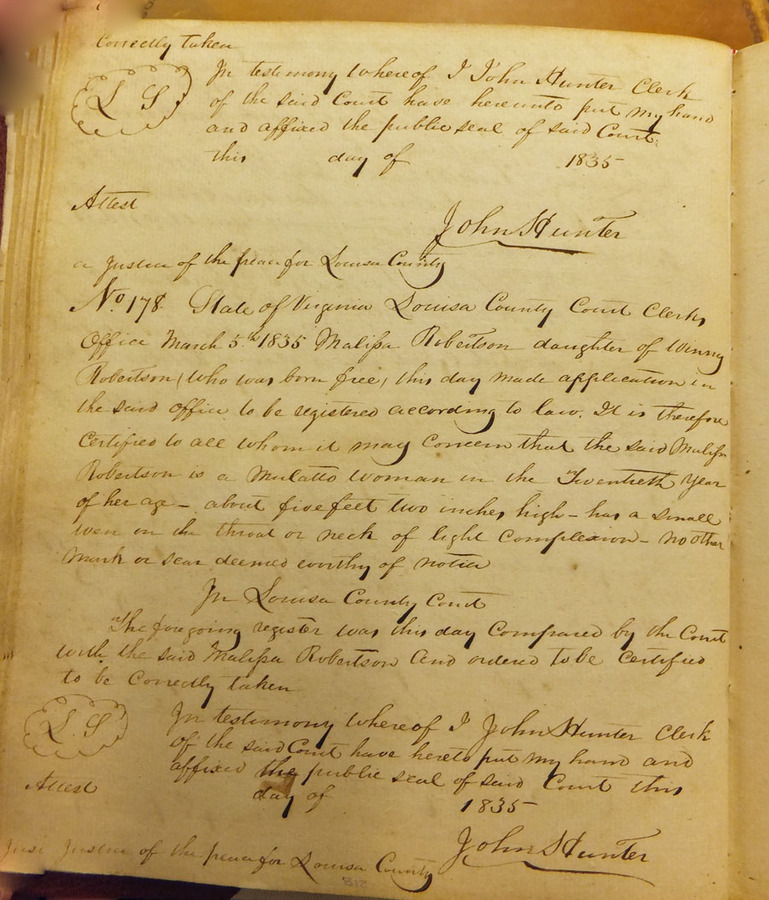 Correctly taken
L S
In testimony whereof I John Hunter Clerk
of the said Court have hereunto put my hand
and affixed the public seal of said Court
this day of 1835
Attest
John Hunter
a Justice of the peace for Louisa County
No 178. State of Virginia Louisa County Court Clerks
Office March 5th 1835 Malissa Robertson daughter of Winny
Robertson (who was born free) this day made application in
the said office to be registered according to law. It is therefore
Certified to all whom it may Concern that the said Malissa
Robertson is a Mulatto Woman in the Twentieth Year
of her age – about five feet two inches high – has a small
wen on the throat or neck of light Complexion – no other
Mark or scar deemed worthy of notice
In Louisa County Court
The foregoing register was this day Compared by the Court
with the said Malissa Robertson and ordered to be Certified
to be Correctly taken
L S
In testimony whereof I John Hunter Clerk
of the said Court have hereto put my hand and
affixed the public seal of said Court this
day of 1835
Attest
John Hunter
Justice of the peace for Louisa County